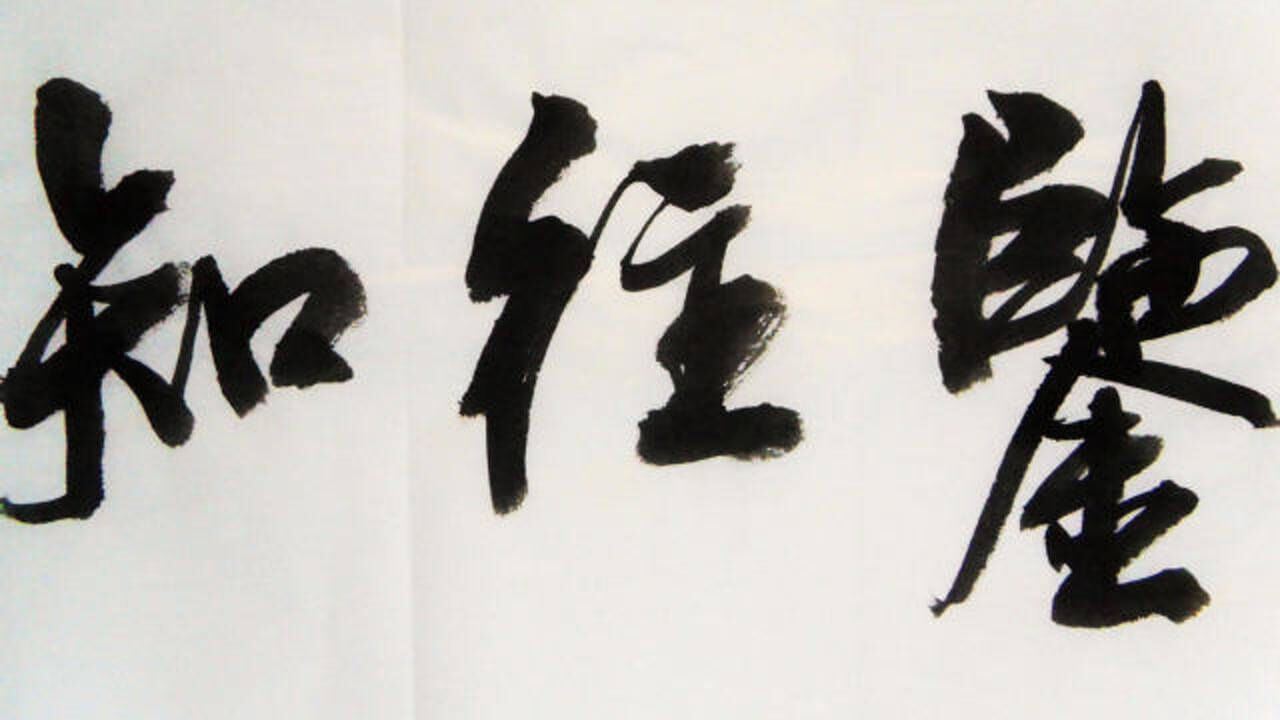 鑒往知